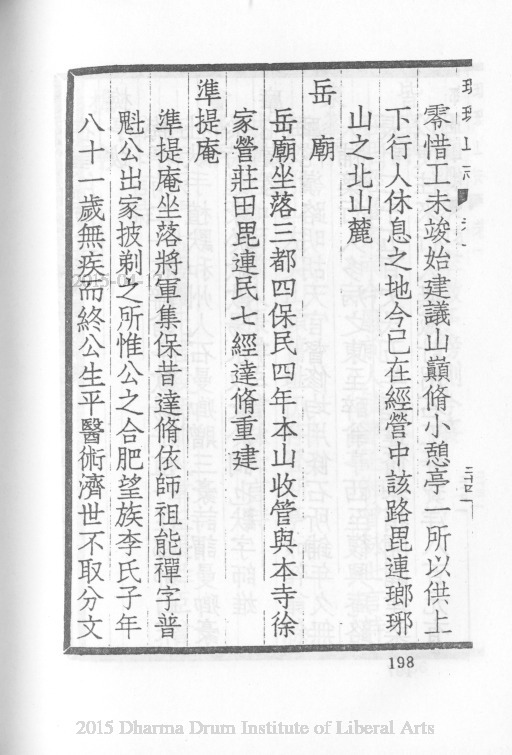 零惜工未竣始建議山巔脩小憩亭一所以供上
下行人休息之地今已在經營中該路毘連瑯琊
山之北山麓
岳廟
岳廟坐落三都四保民四年本山收管與本寺徐
家營莊田毘連民七經達脩重建
準提庵
準提庵坐落將軍集保昔達脩依師祖能禪字普
魁公出家披剃之所惟公之合肥望族李氏子年
八十一歲無疾而終公生平醫術濟世不取分文
198
2015 Dharma Drum Institute of Liberal Arts